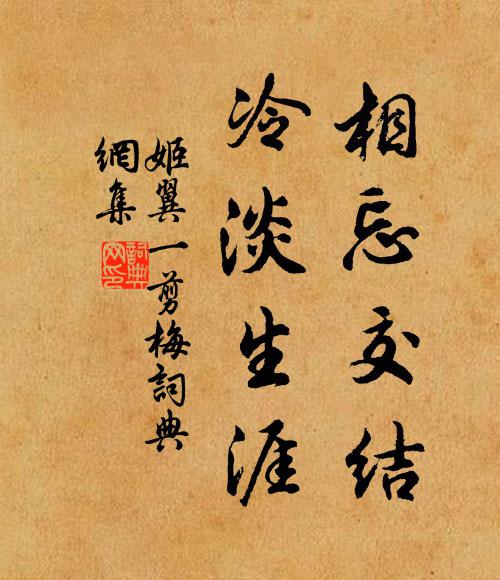 相忘交结
冷淡生涯
姬翼一剪梅詞典
網集
詞典网印